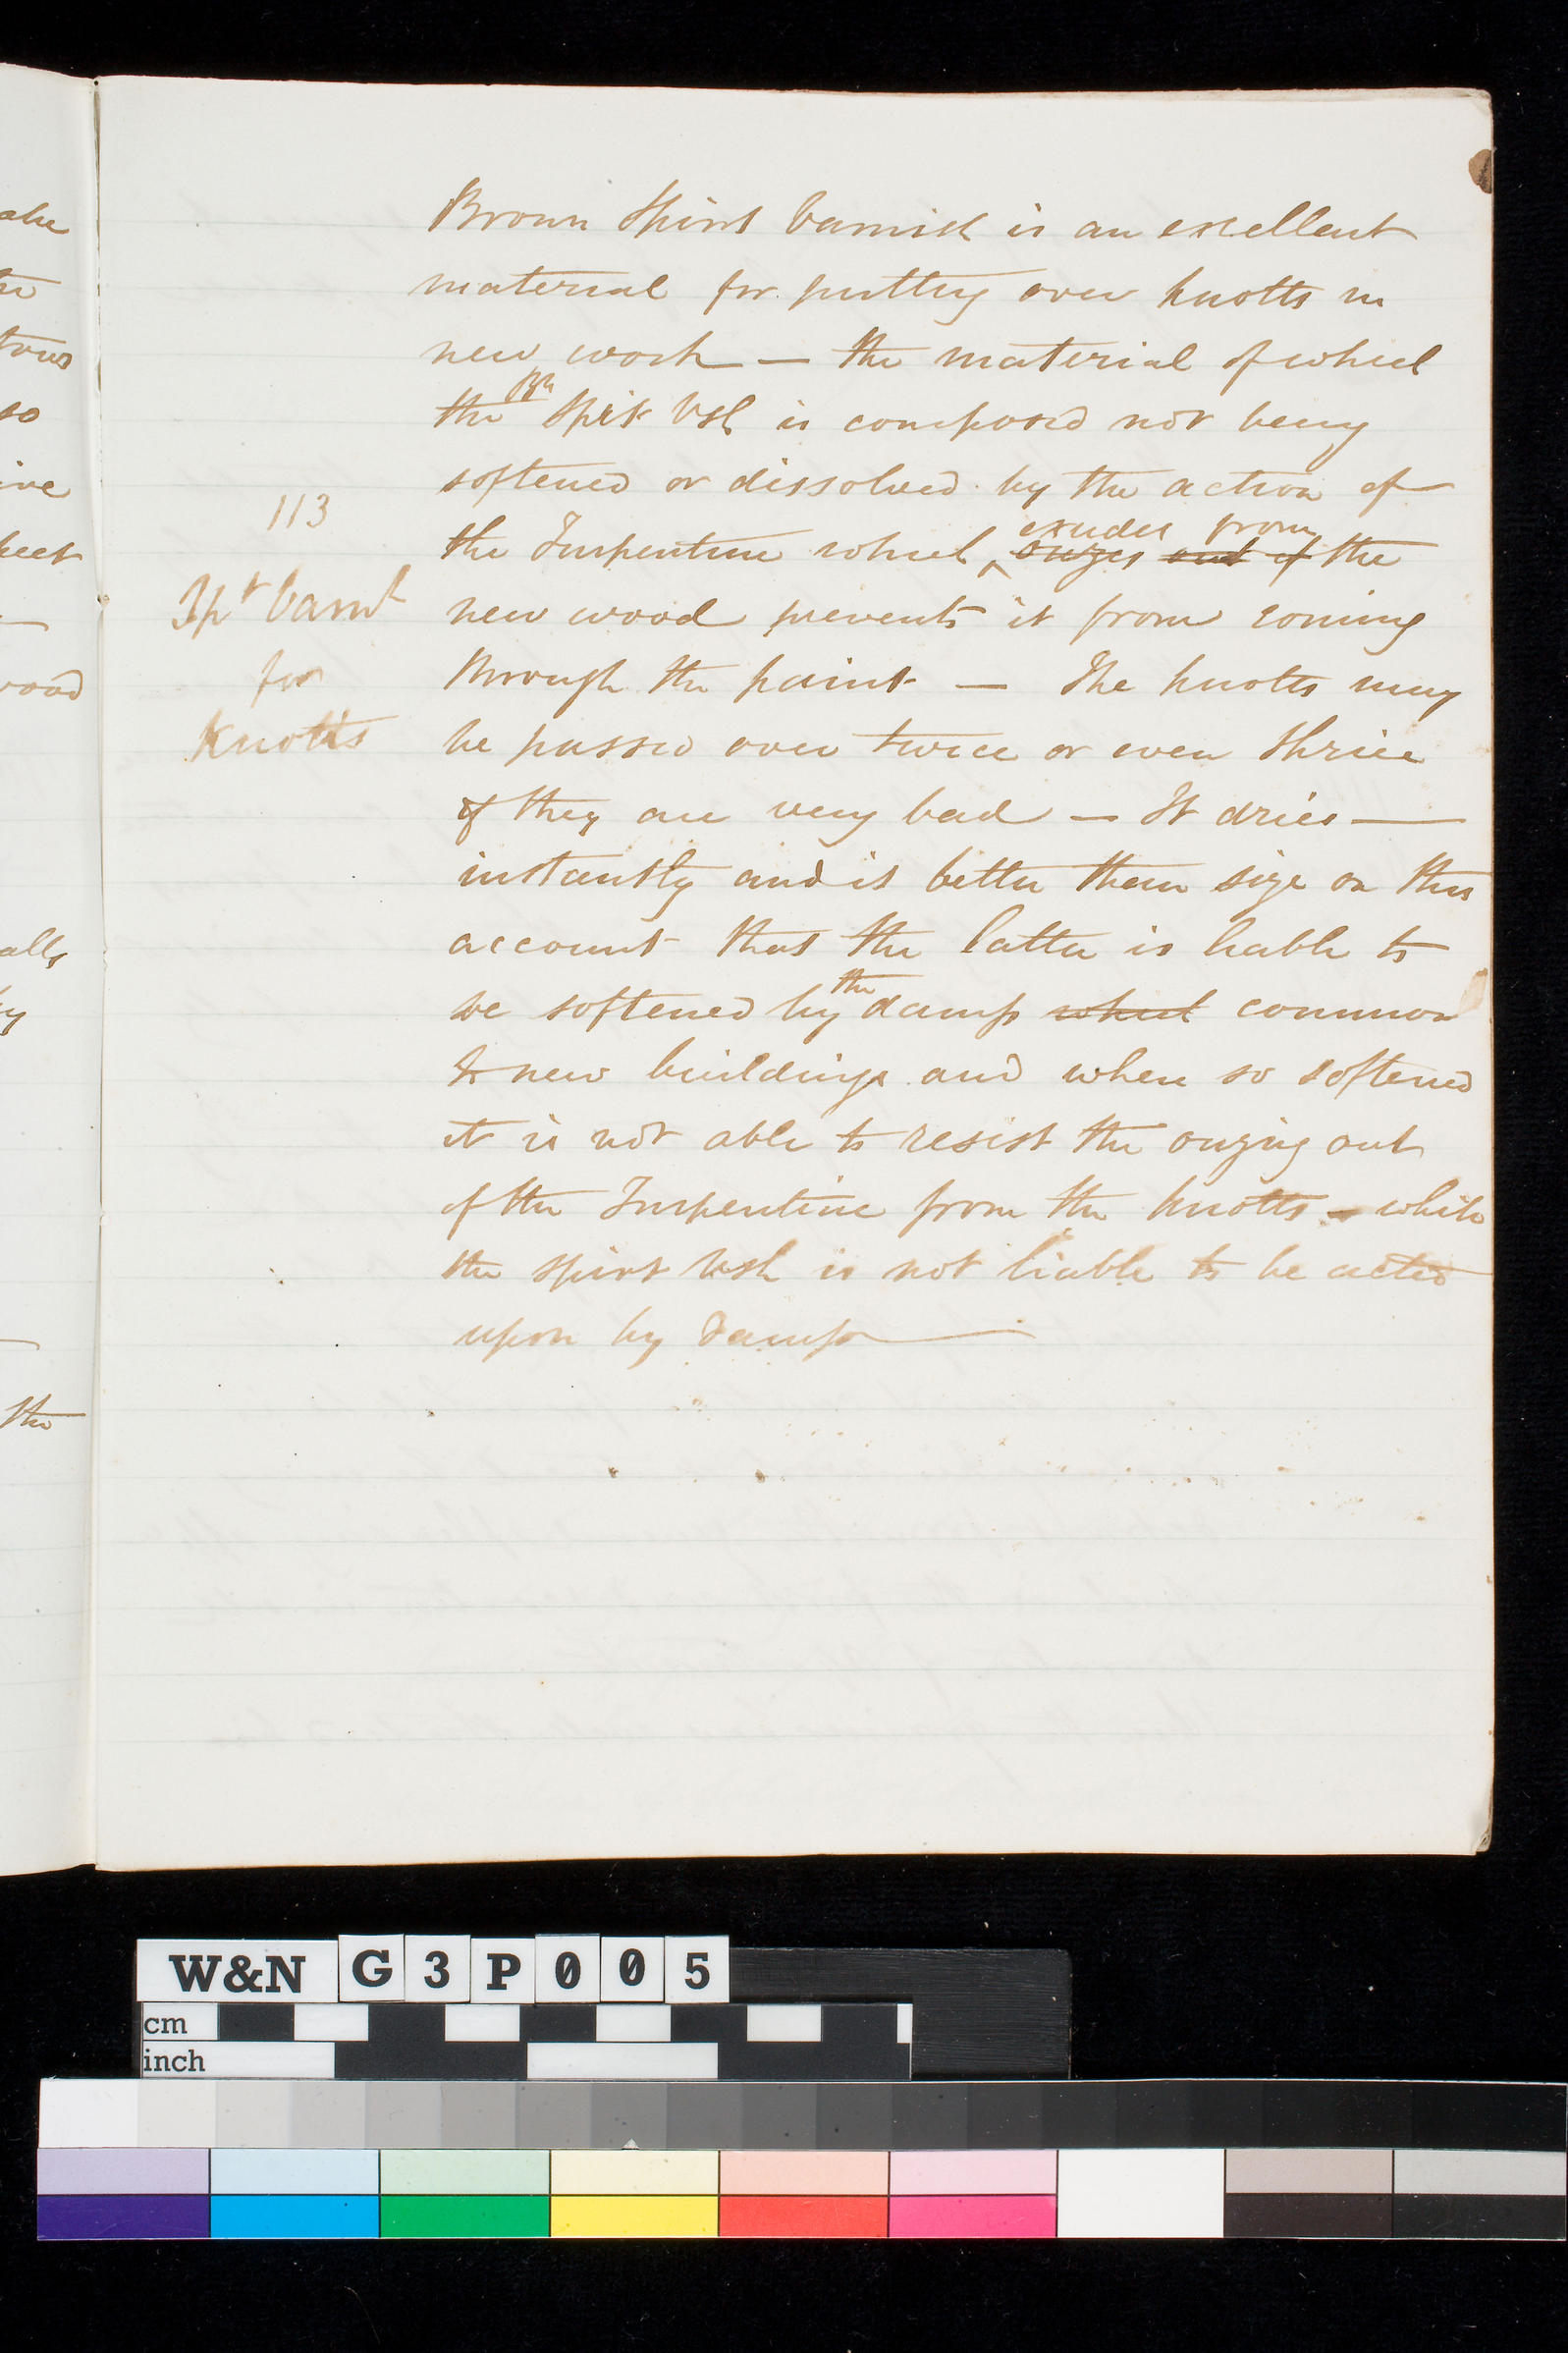 Brown Spirit Varnish is an excellent
material for putting over knotts in
new work — the material of which
the Bn Spirt Vsh is composed not being
softened or dissolved by the action of
113
exudes from
the Turpentine which ouzes out of the
Spt Varnh
new wood prevents it from coming
for
through the paint — The knotts may
Knotts
be passed over twice or even thrice
if they are very bad — It dries —
instantly and is better than size on this
account that the latter is liable to
be softened by the damp which common
to new buildings and when so softened
it is not able to resist the ouzing out
of the Turpentine from the knotts — while
the spirit Vsh is not liable to be acted
upon by damp —
ive
alls
the
so
W&N G3P005
cm
inch